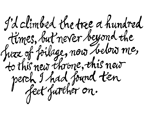 I'd climbed the tree a hundred
times, but never beyond the
fuzz of foliage, now below me,
to this new throne, this new
perch I had found ten
feet further on.